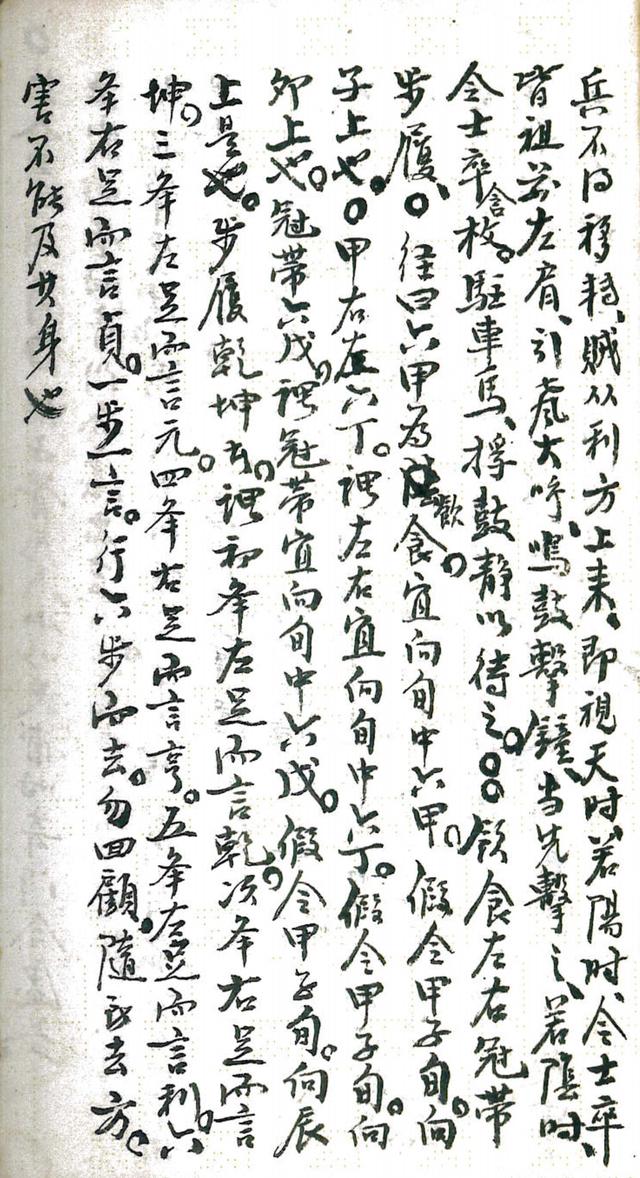 兵不得移轉、賊从利方上来。即視天时、若陽时、令士卒
皆袒前左肩、引气大呼、鳴鼓擊鐘、当先擊之、若陰时、
令士卒含枚。駐車馬、桴鼓静以待之。〇飲食左右冠带
步履、〇経曰六甲為飲食。宜向旬中六甲。假令甲子旬。向
子上也。〇甲右左六丁。謂左右宜向旬中六丁。假令甲子旬。向
卯上也。冠带六戊。謂冠带宜向旬中六戊。假令甲子旬。向辰
上是也。步履乾坤者。謂初夅左足而言乾。次夅右足而言
坤。三夅左足而言元。四夅右足而言亨。五夅左足而言利。六
夅右足而言貞。一步一言。行六步而去。勿回顧。隨所去方。
害不能及其身也